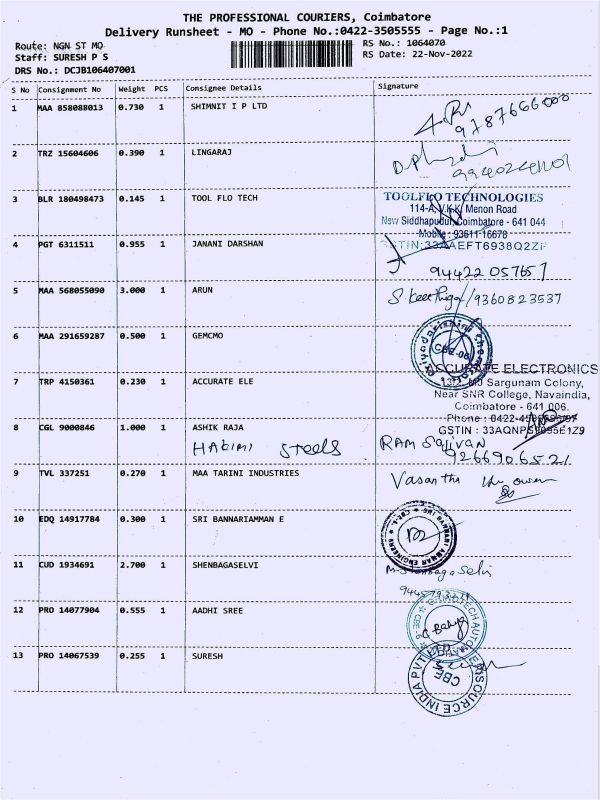 THE PROFESSIONAL COURIERS, Coimbatore
Delivery Runsheet - MO - Phone No.:0422-3505555 - Page No.:1
Route: NGN ST MO
RS No.: 1064070
Staff: SURESH P S
RS Date: 22-Nov-2022
DRS No.: DCJB106407001
S No Consignment No Weight PCS Consignee Details Signature
1 MAA 858088013 0.730 1 SHIMNIT I P LTD
9787666000
2 TRZ 15604606 0.390 1 LINGARAJ
3 BLR 180498473 0.145 1 TOOL FLO TECH
TOOLFLO TECHNOLOGIES
114-A, V.K.K. Menon Road
New Siddhapudur, Coimbatore - 641 044
Mobile : 93611 16678
GSTIN:33AAEFT6938Q2ZF
4 PGT 6311511 0.955 1 JANANI DARSHAN
94422 05765
5 MAA 568055090 3.000 1 ARUN
S. Keerthiga/9360823537
6 MAA 291659287 0.500 1 GEMCMO
CBE-06
7 TRP 4150361 0.230 1 ACCURATE ELE
ACCURATE ELECTRONICS
MJ Sargunam Colony,
Near SNR College, Navaindia,
Coimbatore - 641 006.
Phone : 0422-
GSTIN : 33AQNPS
8 CGL 9000846 1.000 1 ASHIK RAJA
HAKIMI STEELS
RAM Sajivan
9266906521
9 TVL 337251 0.270 1 MAA TARINI INDUSTRIES
Vasantha
10 EDQ 14917784 0.300 1 SRI BANNARIAMMAN E
SRI BANNARI AMMAN ENGINEERS
11 CUD 1934691 2.700 1 SHENBAGASELVI
12 PRO 14077904 0.555 1 AADHI SREE
CBE-6
13 PRO 14067539 0.255 1 SURESH
CBE
SOURCE INDIA PVT